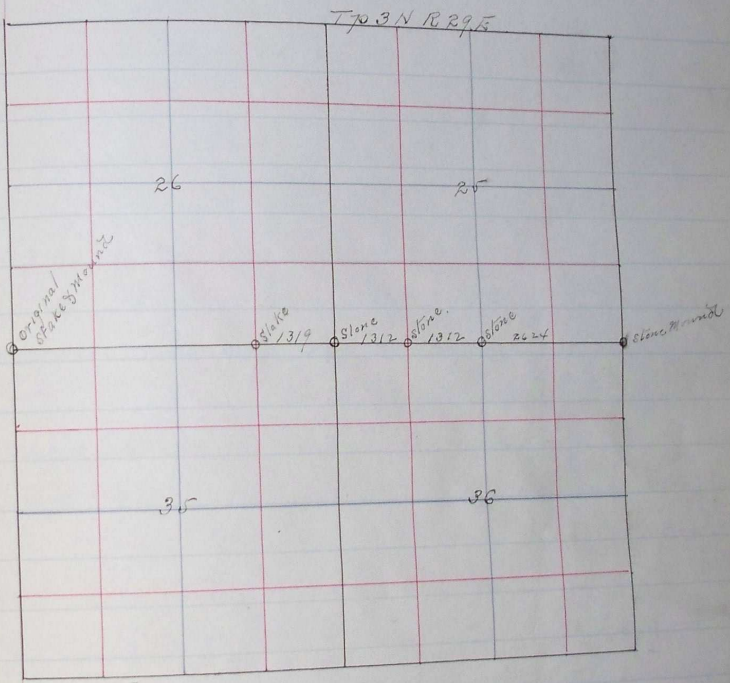 Tp 3 N R 29 E
26
25
Original
Stake & Mound
Stake
1319
Stone
1312
Stone.
1312
Stone
2624
Stone Mound
35
36